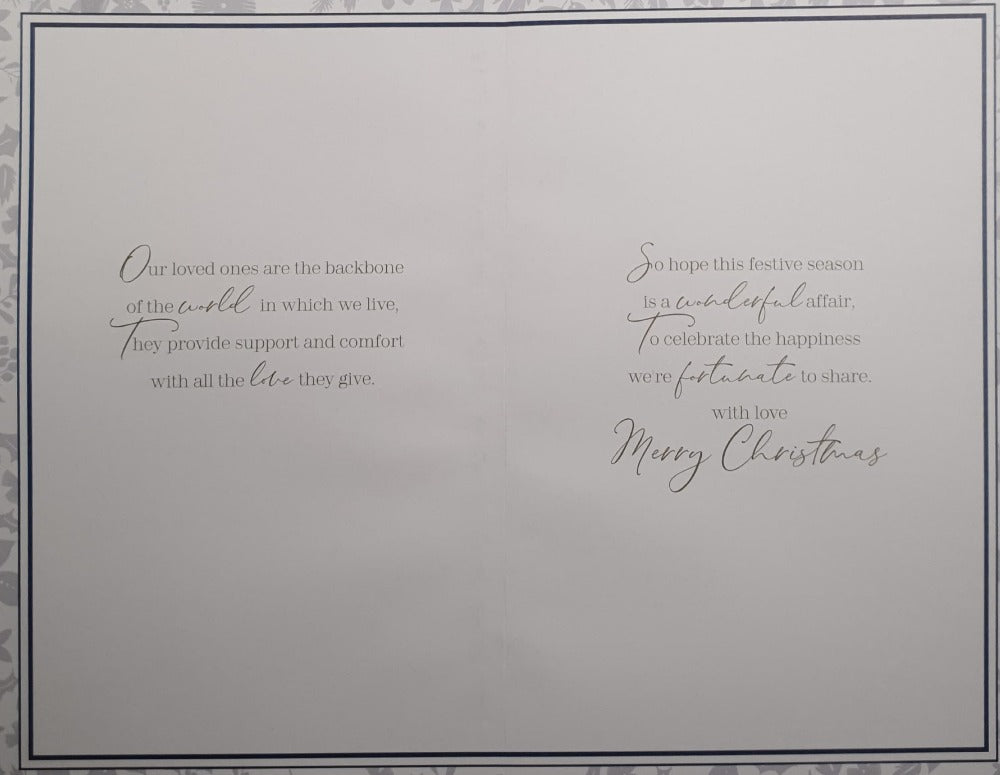 Our loved ones are the backbone
of the world in which we live,
They provide support and comfort
with all the love they give.
So hope this festive season
is a wonderful affair,
To celebrate the happiness
we're fortunate to share.
with love
Merry Christmas